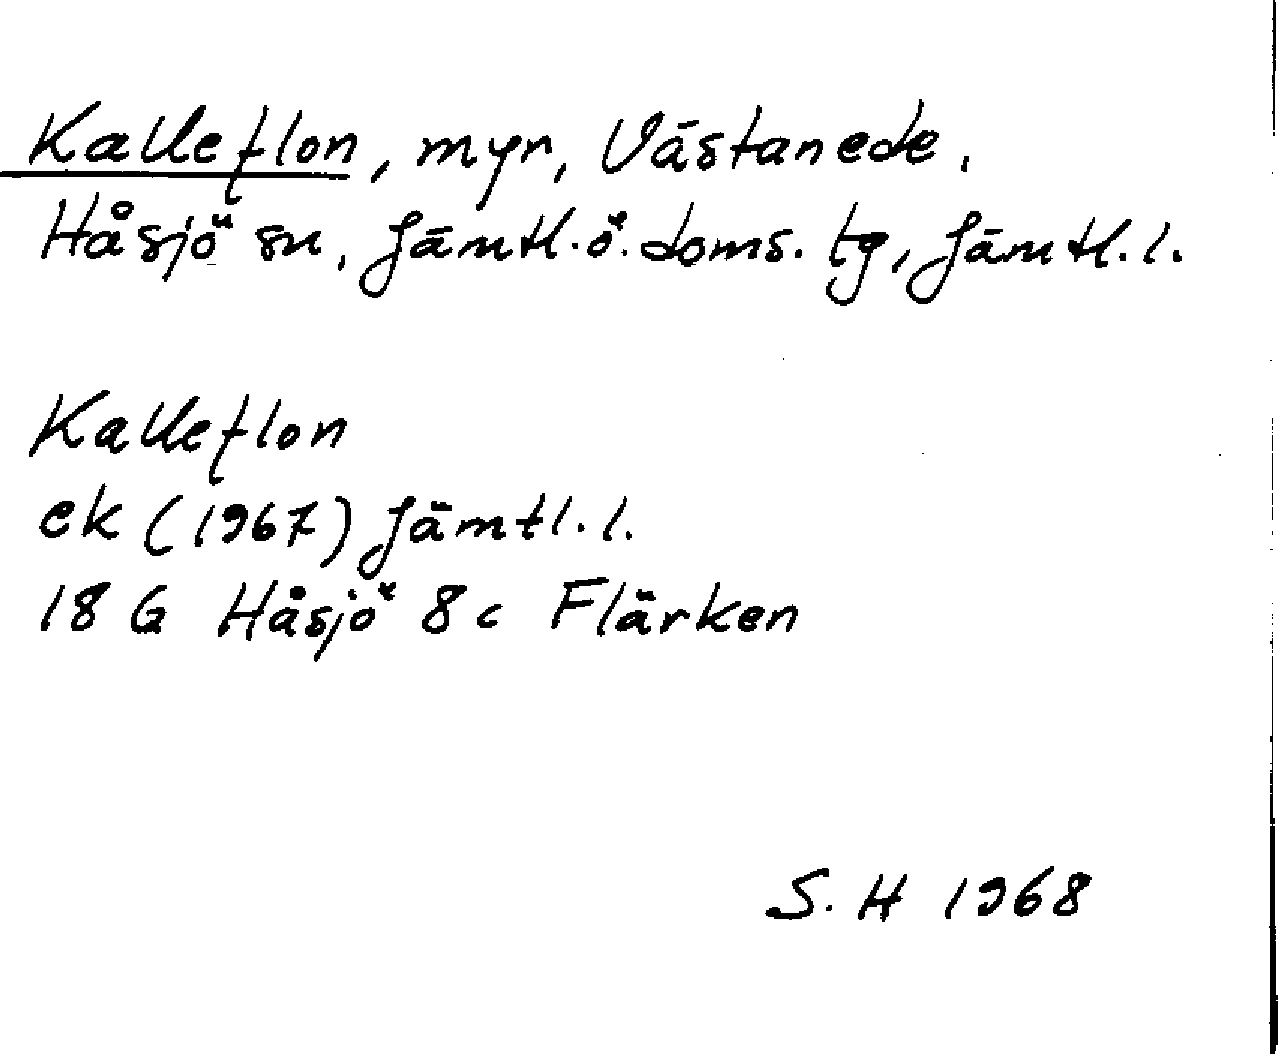 Kalleflon, myr, Västanede,
Håsjö sn, Jämtl. ö. doms. tg, Jämtl. l.
Kalleflon
ek (1967) Jämtl. l.
18 G Håsjö 8 c Flärken
S. H 1968